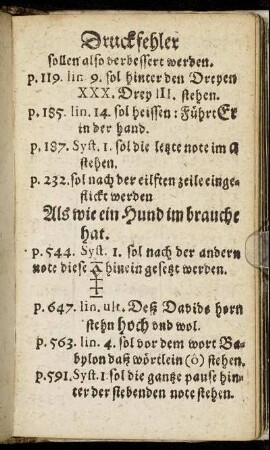 Druckfehler
sollen also verbessert werden.
p. 119. lin. 9. sol hinter den Dreyen
XXX. Drey III. stehen.
p. 185. lin. 14. sol heissen: Führt Er
in der hand.
p. 187. Syst. 1. sol die letzte note im a
stehen.
p. 232. sol nach der eilften zeile einge-
flickt werden
Als wie ein Hund im brauche
hat.
p. 544. Syst. 1. sol nach der andern
note diese hinein gesetzt werden.
p. 647. lin. ult. Deß Davids horn
stehn hoch vnd wol.
p. 563. lin. 4. sol vor dem wort Ba-
bylon daß wörtlein (ô) stehen.
p. 591. Syst. 1. sol die gantze pause hin-
ter der siebenden note stehen.